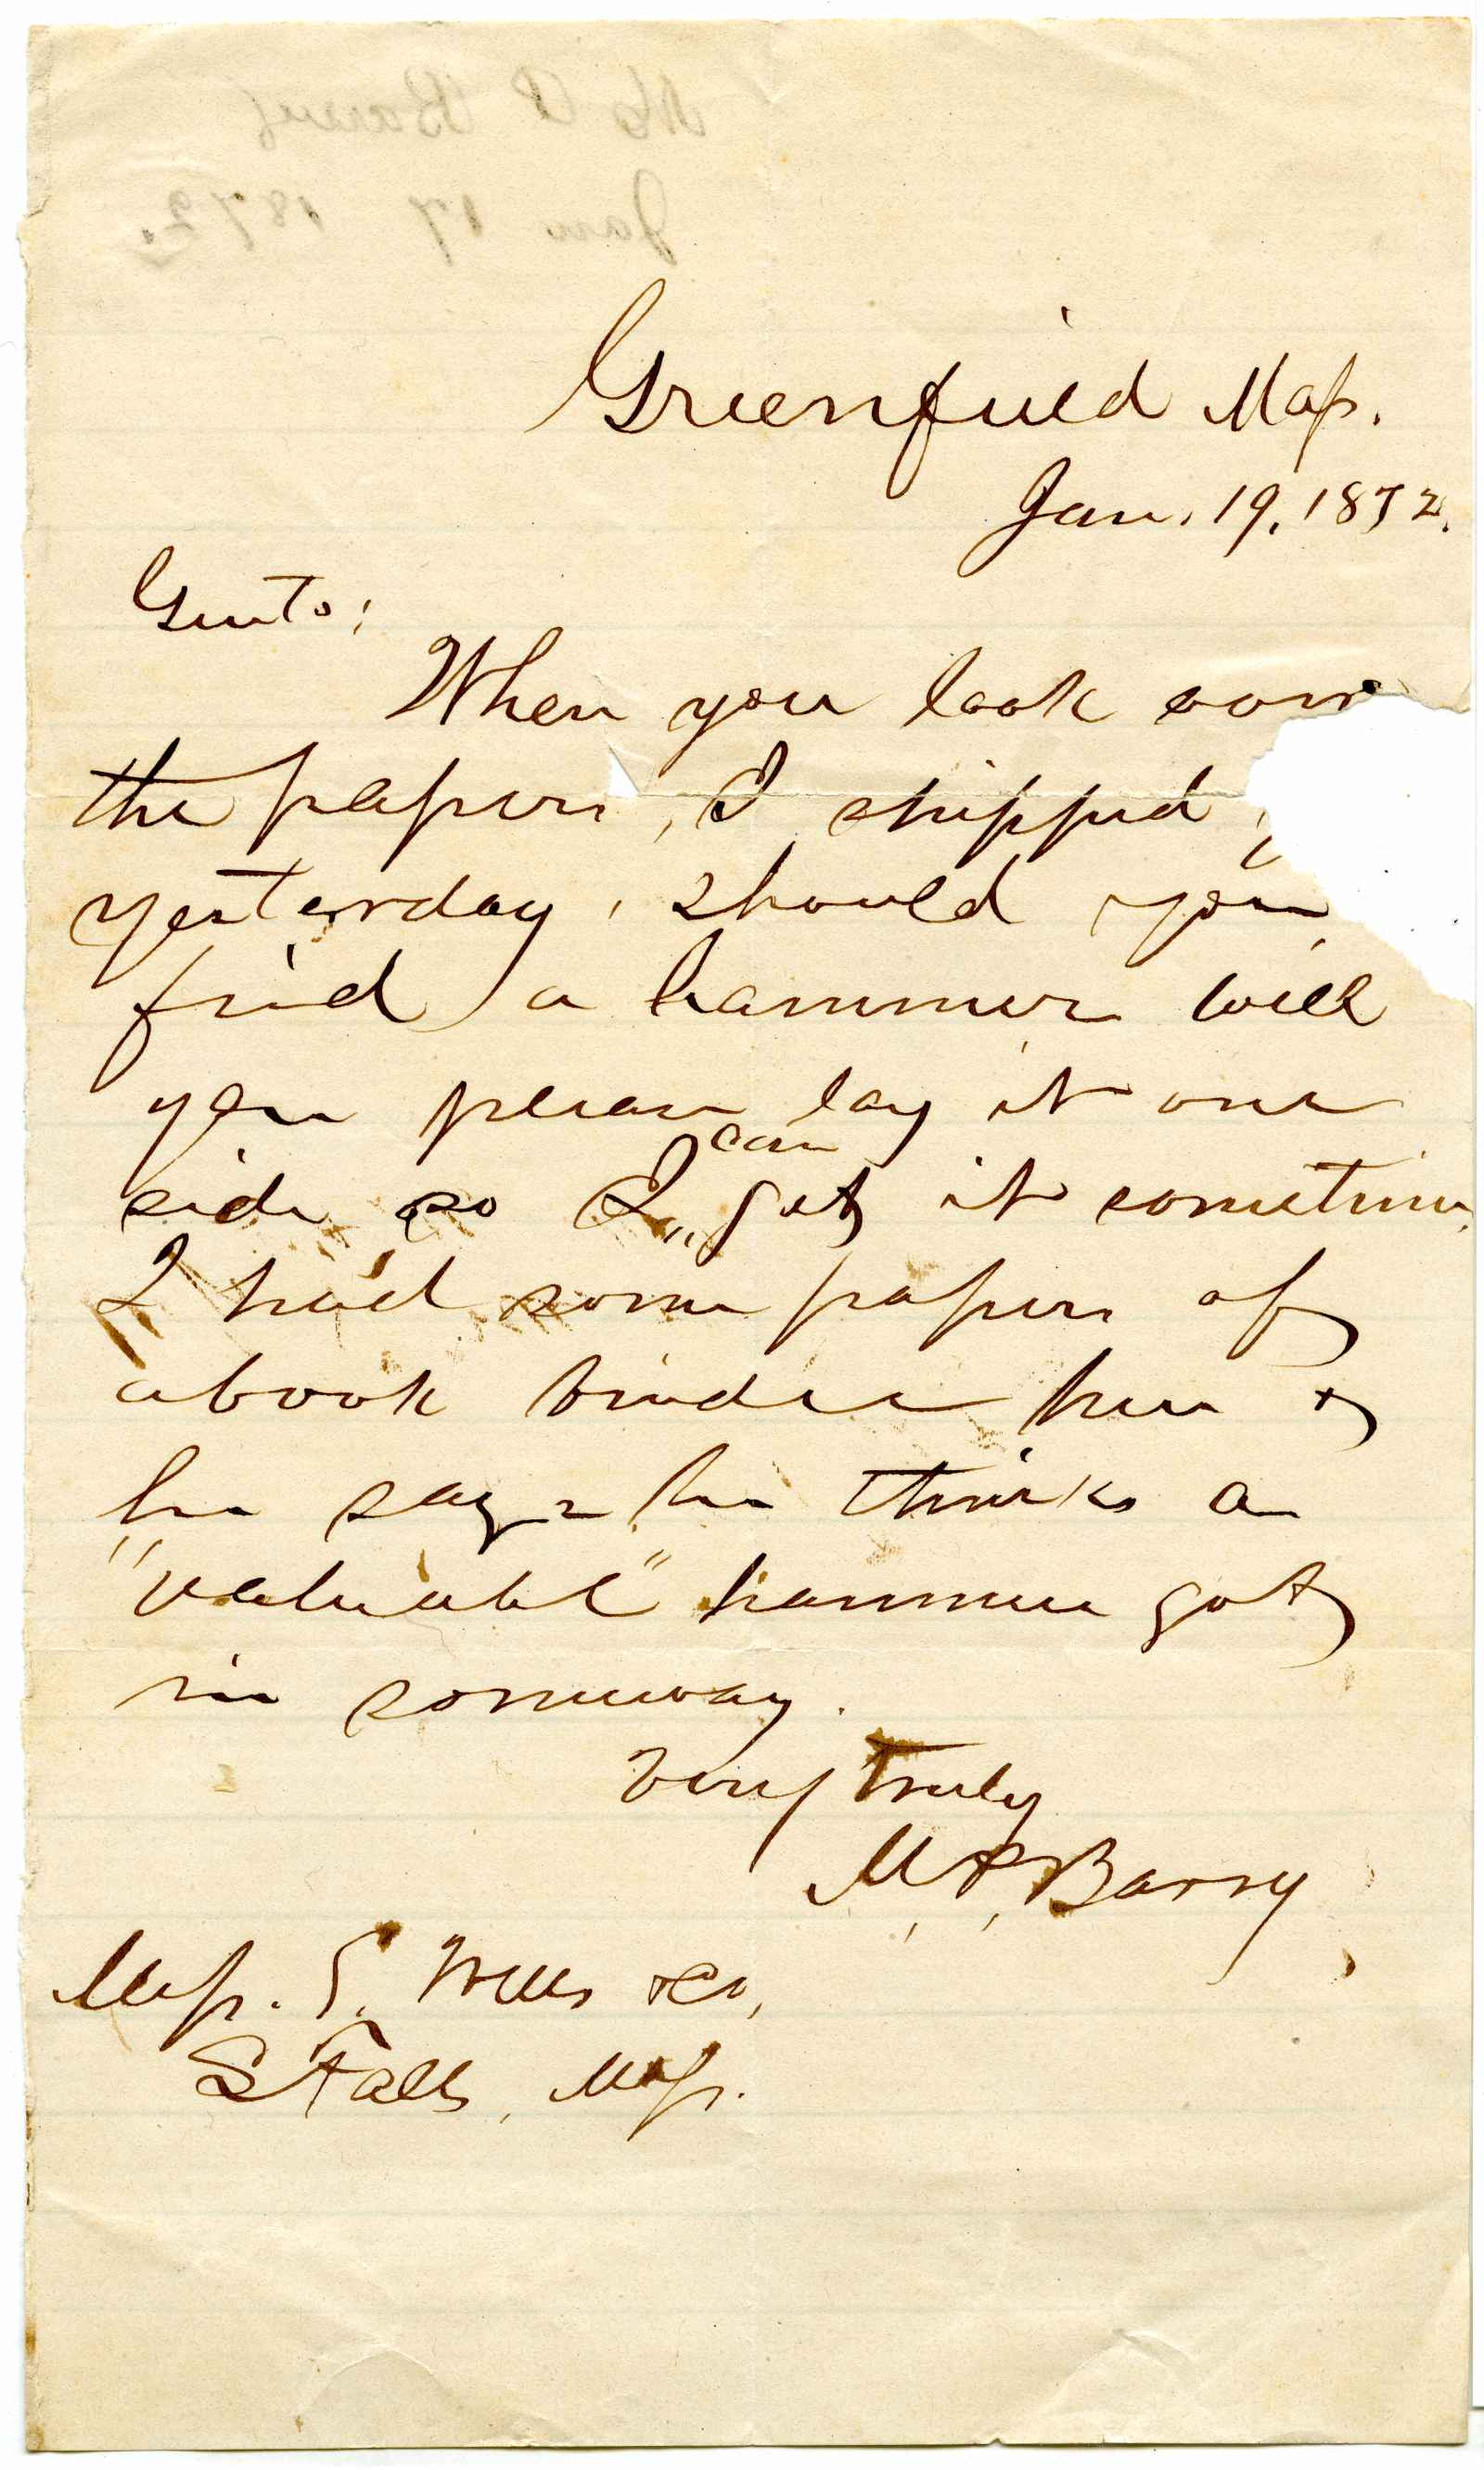 Greenfield Mass.
Jan. 19, 1872.
Gents:
When you look over
the papers, I shipped
yesterday, should you
find a hammer will
you please lay it one
side so I can get it sometime.
I had some papers of
a book binder here &
he says he thinks a
"valuable" hammer got
in someway.
Very truly
M. P. Barry
Mess. Wells & Co,
S Falls, Mass.
Barry
Jan 17 1872.